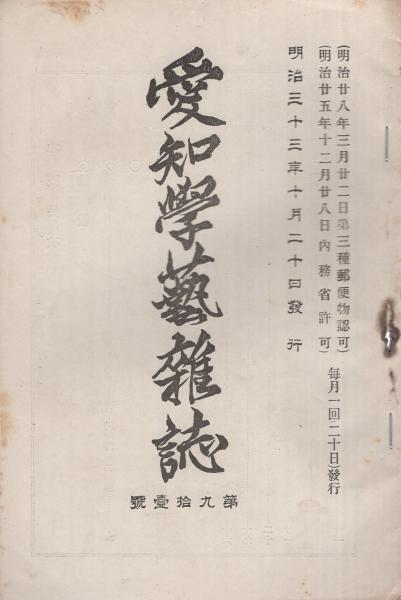 (明治廿八年三月廿二日第三種郵便物認可)
(明治廿五年十二月廿八日內務省許可)
每月一回二十日發行
明治三十三年十月二十日發行
愛知學藝雜誌
第九拾壹號